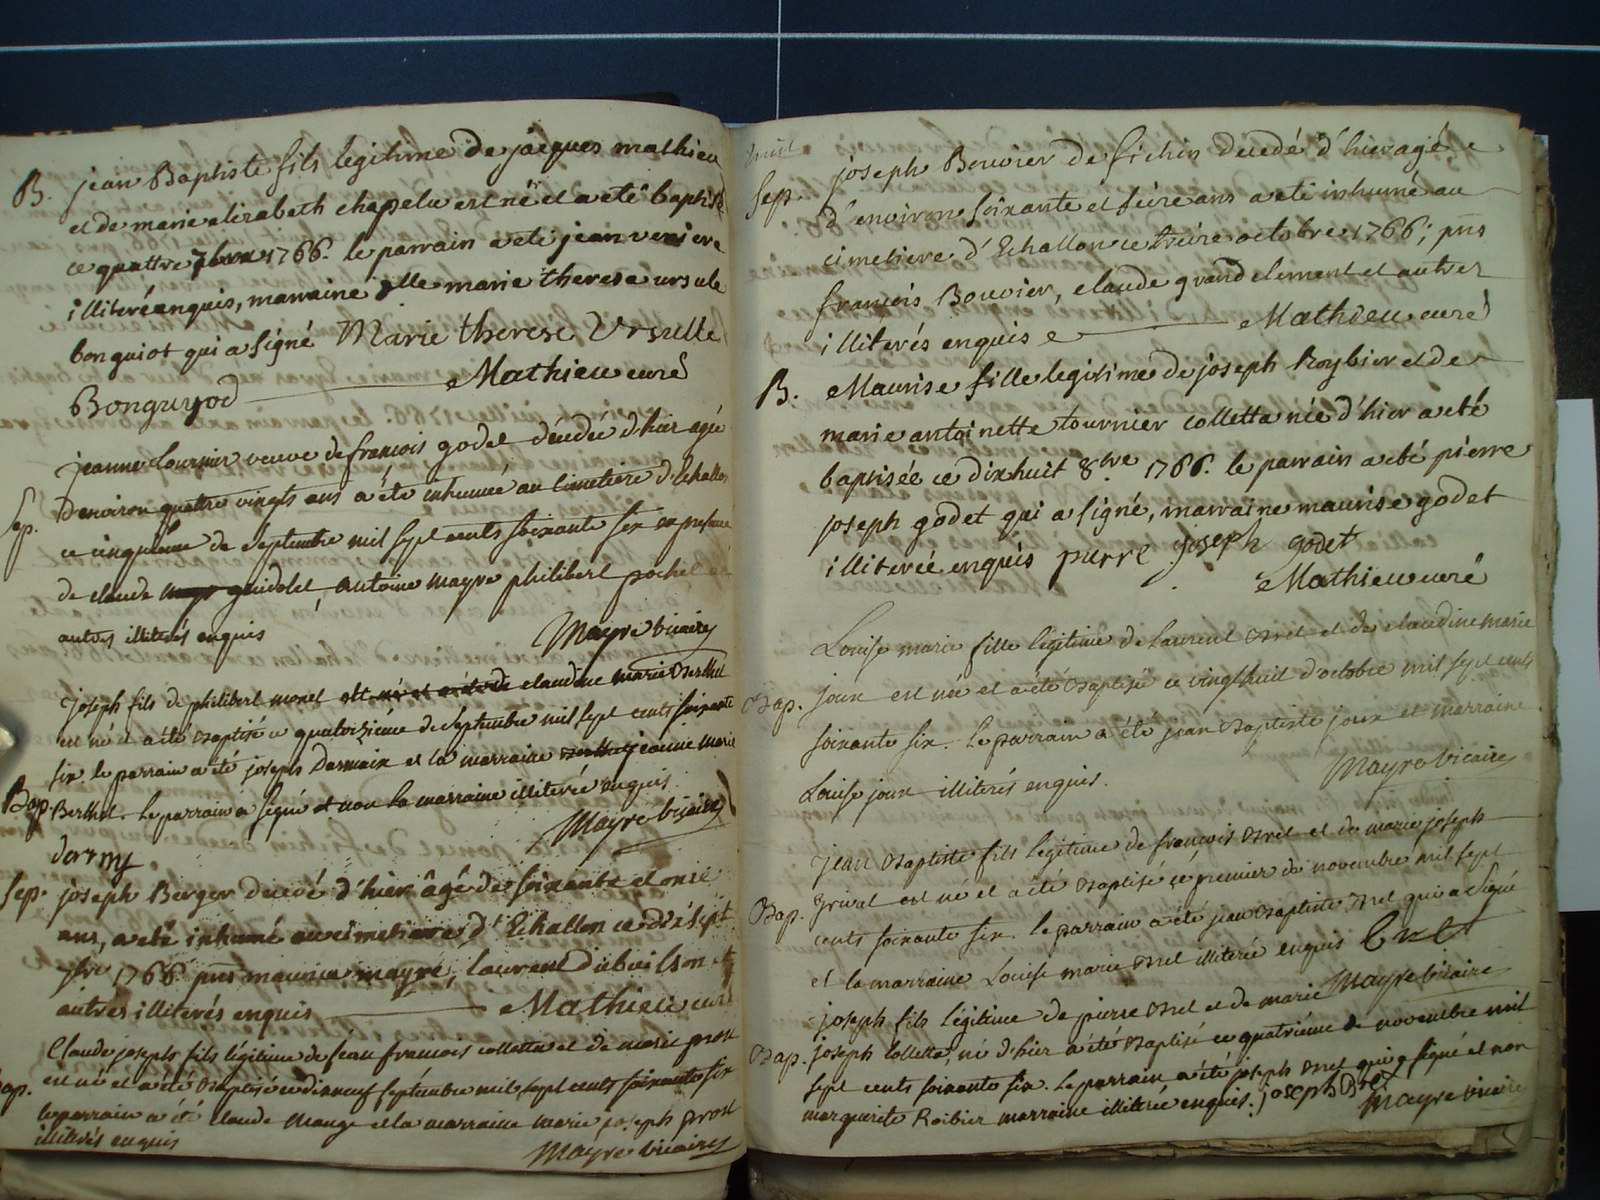 B. jean Baptiste fils legitime de jacques mathieu
et de marie elizabeth chapelu est né et a eté baptisé
ce quattre 7bre 1766. le parrain a eté jean
illiteré enquis, marraine dlle marie therese ursule
bonguiot qui a signé Marie therese Ursulle
Bonguyod Mathieu curé
jeanne tournier veuve de francois godet décédée d'hier agée
Sep. d'environ quattre vingts ans a été inhumée au cimetiere d'Echallon
ce cinquieme de Septembre mil sept cents soixante six en presence
de claude guidolet, antoine mayre philibert pochet et
autres illiterés enquis Mayre vicaire
joseph fils de philibert monet claudine marie Berthet
est né et a été baptisé ce quatorzieme de Septembre mil sept cents soixante
six. le parrain a été joseph Darmain et la marraine jeanne marie
Bap. Berthet. le parrain a signé et non la marraine illiterée enquis
Mayre vicaire
Sep. joseph Berger decedé d'hier âgé de soixante et onze
ans, a eté inhumé au cimetiere d'Echallon ce dixsept
7bre 1766. pnts maurice mayre, laurent dubuisson et
autres illiterés enquis Mathieu curé
Claude joseph fils légitime de jean francois colletta et de marie prost
Bap. est né et a été baptisé ce dixneuf septembre mil sept cents soixante six
le parrain a été Claude Mange et la marraine marie joseph prost
illiterés enquis Mayre vicaire
joseph Bouvier de fichin decedé d'hier agé
Sep. d'environ soixante et seize ans a eté inhumé au
cimetiere d'Echallon ce treize octobre 1766; pnts
francois Bouvier, claude grandclement et autres
illiterés enquis Mathieu curé
B. Maurise fille legitime de joseph Roybier et de
marie antoinette tournier colletta née d'hier a eté
baptisée ce dixhuit 8bre 1766. le parrain a eté pierre
joseph godet qui a signé, marraine maurise godet
illiterée enquis pierre joseph godet
Mathieu curé
Louise marie fille légitime de laurent Bret et de claudine marie
Bap. joux est née et a été Baptisée ce vingthuit d'octobre mil sept cents
soixante six. le parrain a été jean Baptiste joux et marraine
Louise joux illiterés enquis. Mayre vicaire
jean Baptiste fils légitime de francois Bret et de marie joseph
Bap. grivat est né et a été Baptisé ce premier de novembre mil sept
cents soixante six. le parrain a été jean Baptiste Bret qui a signé
et la marraine Louise marie Bret illiterée enquis Bret
Mayre vicaire
joseph fils légitime de pierre Bret et de marie
Bap. joseph Colletta, né d'hier a été Baptisé ce quatrième de novembre mil
sept cents soixante six. le parrain a été joseph Bret qui a signé et non
marguerite Roibier marraine illiterée enquis. joseph Bret
Mayre vicaire